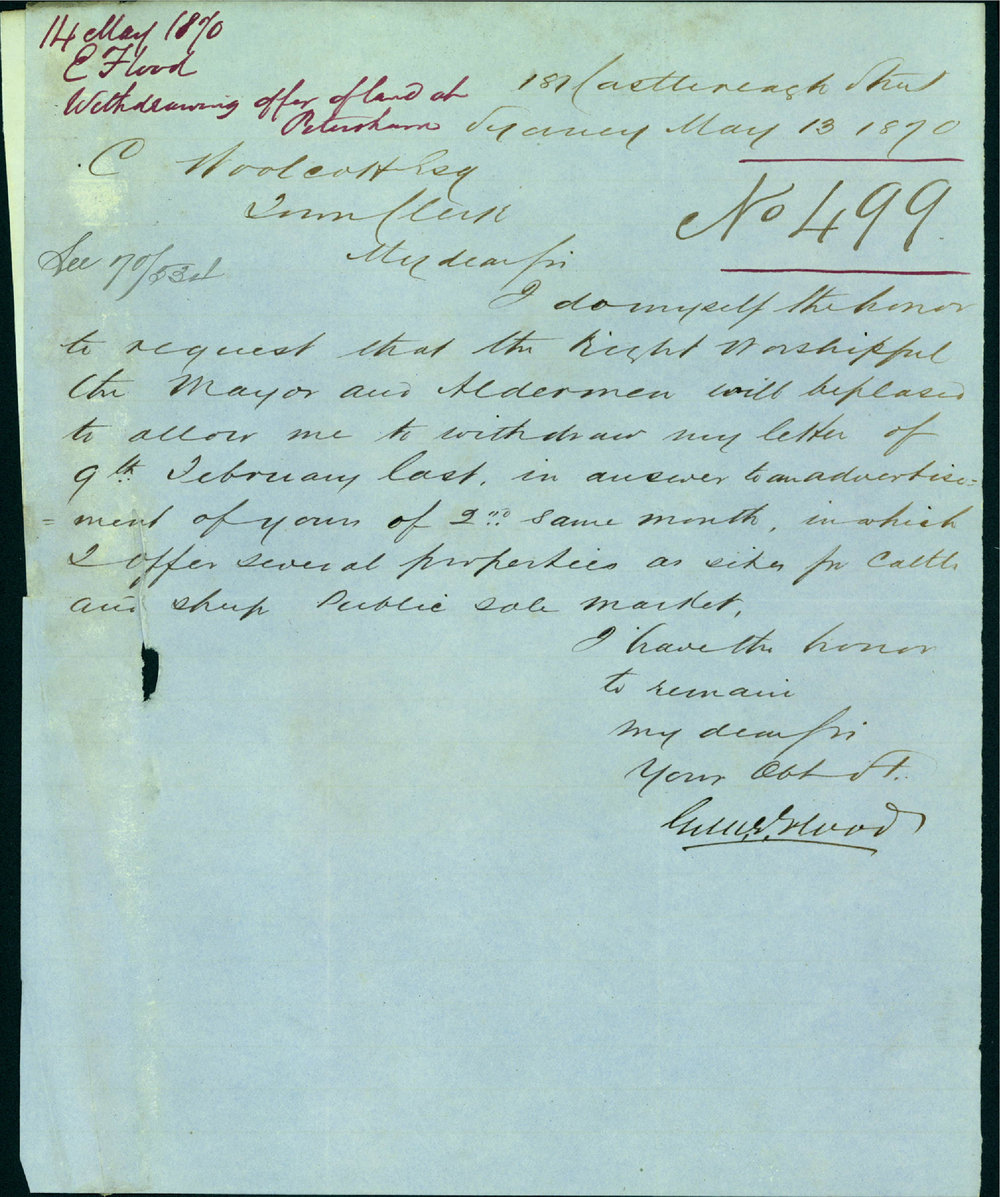 14 May 1870
E Flood
Withdrawing offer of land at
Petersham
Castlereagh Street
Sydney May 13 1870
C Woolcott Esq
Town Clerk
No 499
My dear Sir
See 70/
I do myself the honor
to request that the Right Worshipful
the Mayor and Aldermen will be pleased
to allow me to withdraw my letter of
9th February last, in answer to an advertise=
=ment of yours of 2nd same month, in which
I offer several properties as sites for Cattle
and sheep Public sale market.
I have the honor
to remain
My dear Sir
Your Obt St.
Flood